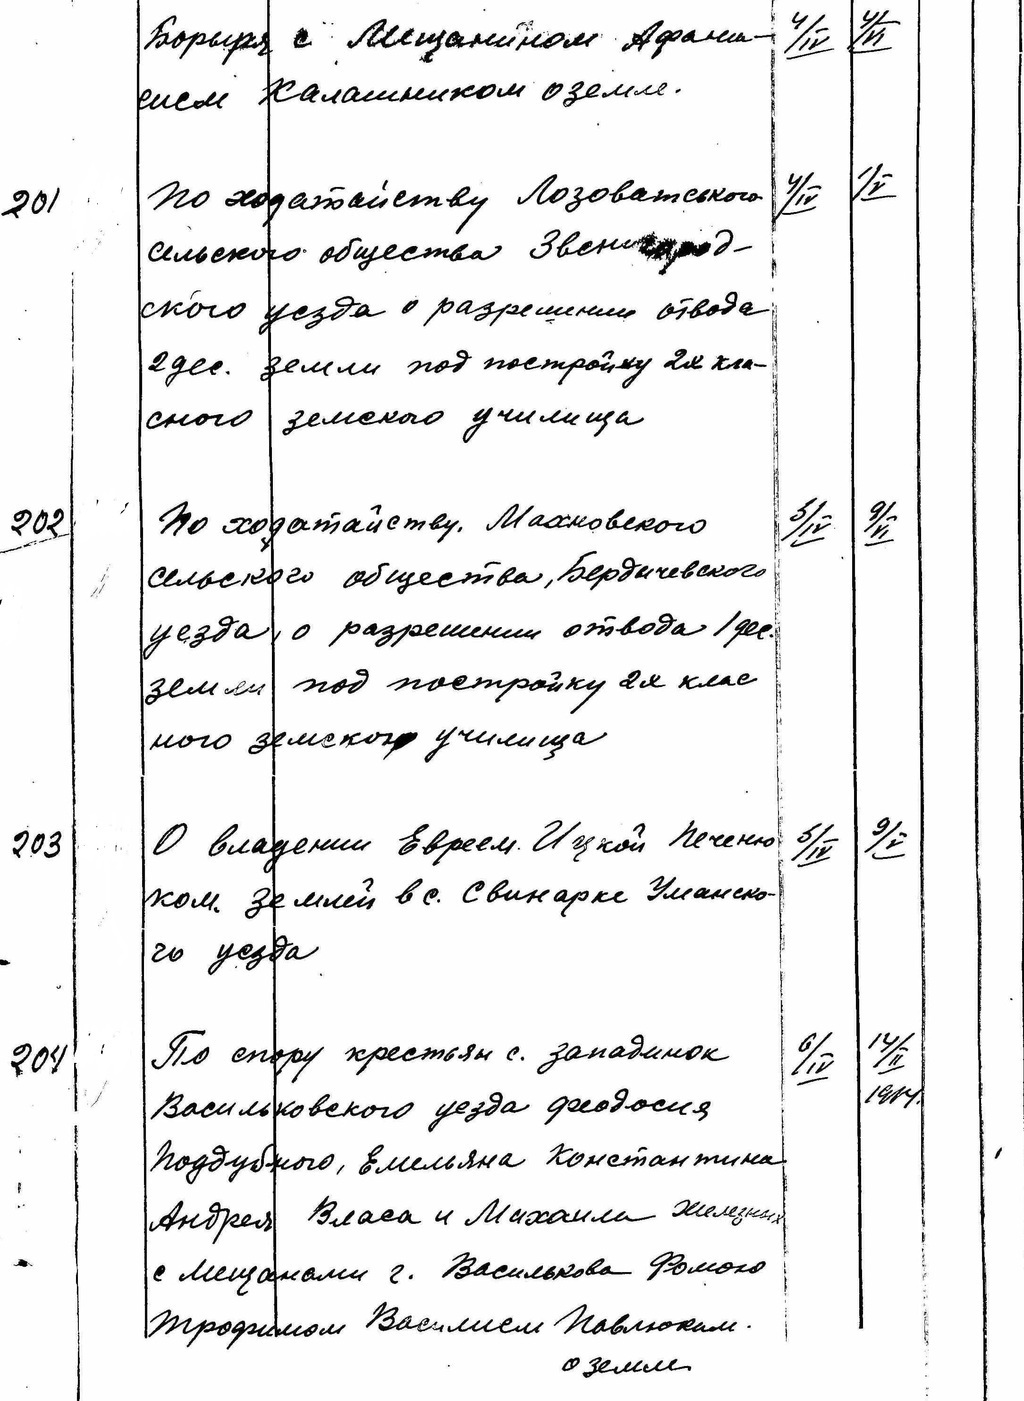 Борыря с Мещанином Афана- 4/IV 4/VI
сием Калашником о земле.
201 По ходатайству Лозоватського 4/IV 1/V
сельского общества Звенигород-
ского уезда о разрешении отвода
2 дес. земли под постройку 2х кла-
сного земского училища
202 По ходатайству Махновского 5/IV 9/VI
сельского общества, Бердичевского
уезда, о разрешении отвода 1 дес.
земли под постройку 2х клас
ного земского училища
203 О владении Евреем Ицкой Печеню 5/IV 9/V
ком. землей в с. Свинарке Уманско-
го уезда
204 По спору крестьян с. западинок 6/IV 14/II
Васильковского уезда Феодосия 1914.
Поддубного, Емельяна Константина
Андрея Власа и Михаила Железных
с мещанами г. Василькова Фомою
Трофимом Василием Павлюками.
о земле